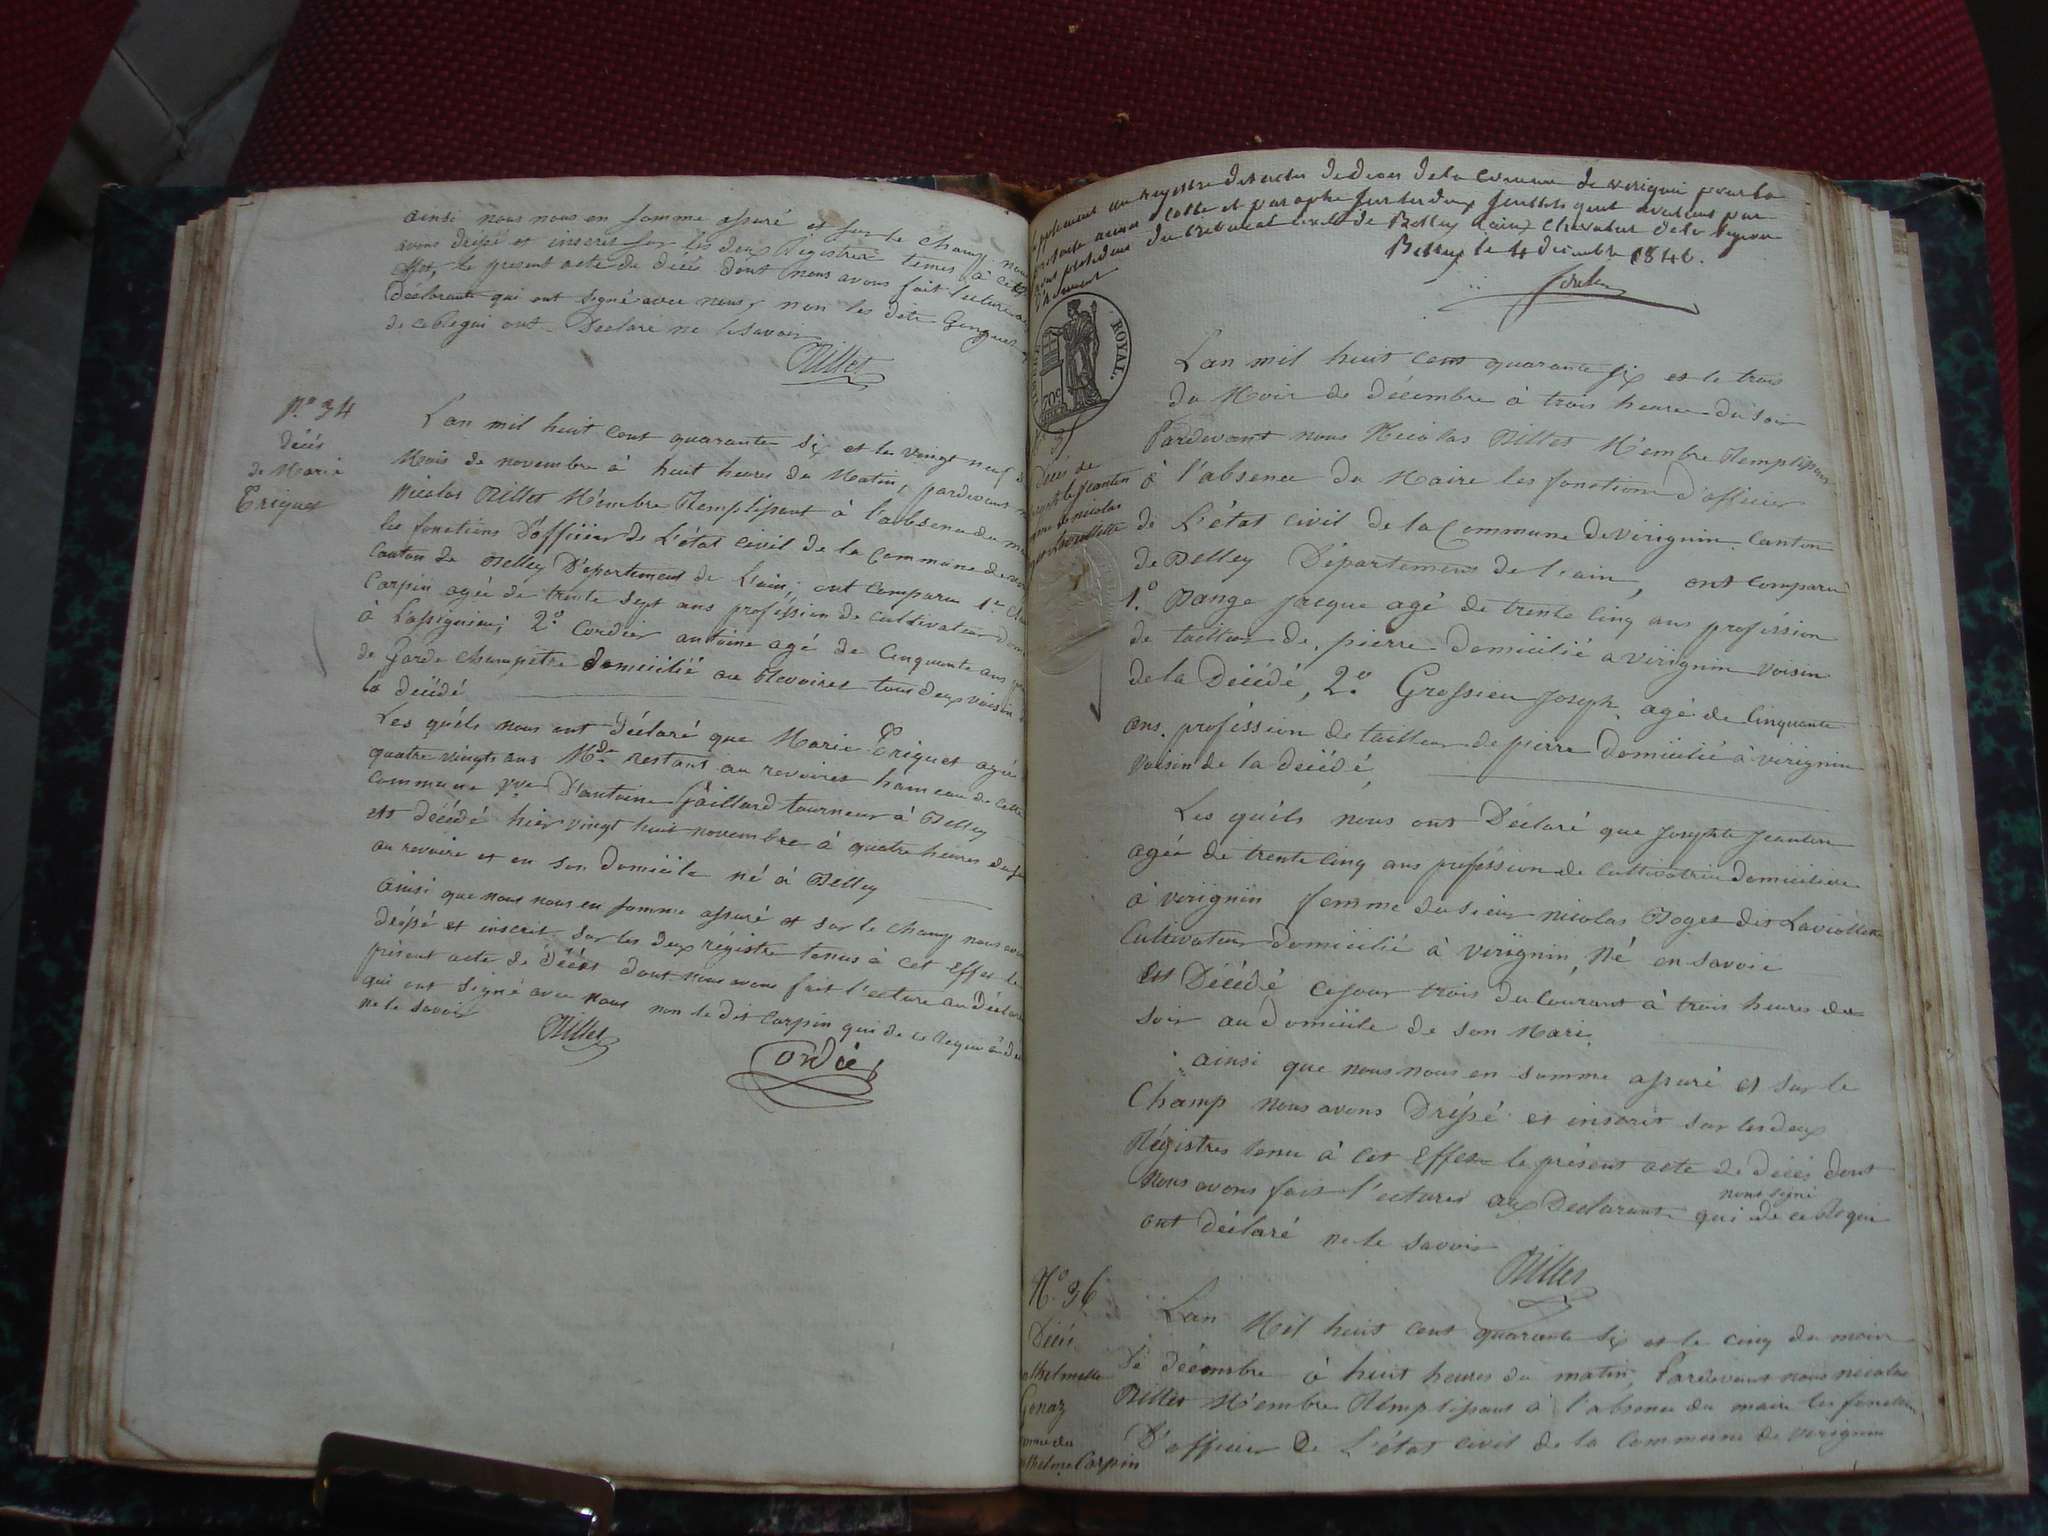 ainsi nous nous en somme assuré et sur le champ nous
avons dréssé et inscris sur les deux Registres tenus à cet
effet, le present acte de décès dont nous avons fait lecture aux
Déclarants qui ont signé avec nous, non les dits
de ce Requi ont Déclaré ne le savoir
Rillet
N.o 34
décès
de Marie
Triquet
L'an mil huit cent quarante six et les vingt neuf d
Mois de novembre à huit heures du Matin, pardevant n
Nicolas Rillet Mémbre Remplissant à l'absence du m
les fonctions D'officier de L'état civil de la Commune de
Canton de Belley Département de L'ain; ont Comparu 1.o
Carpin agée de trente sept ans proféssion de Cultivateur dom
à Lassignieu; 2.o Cordier antoine agé de Cinquante ans
de Garde champêtre domicilié au Revoiret tous deux voisin
la décédé
Les quéls nous ont déclaré que Marie Triquet agée
quatre vingts ans Mde restant au revoiret hameau de cette
commune vve D'antoine Gaillard tourneur à Belley
est décédé hier vingt huit novembre à quatre heures du
au revoire et en son domicile né à Belley
ainsi que nous nous en somme assuré et sur le champ nous avon
dréssé et inscrit sur les deux régistre tenus à cet Effet le
présent acte de décès dont nous avons fait l'ecture au Déclara
qui ont signé avec nous non le dit Carpin qui de ce Requi à d
ne le savoir
Rillet
Cordié
registre des actes de deces de la Comune de virignin pour la
presente annee Cotté et paraphé sur les deux feuillets qui avalent par
nous president du tribunal civil de Belley (ain) Chevalier de la legion
d'honneur
Belley le 4 décembre 1846.
ROYAL.
70c
Décès de
Josephte Jeanton
femme de nicolas
Laviollette
L'an mil huit Cent quarante six et le trois
du Mois de décembre à trois heures du soir
Pardevant nous Nicolas Rillet Mémbre Remplissant
à l'absence du Maire les fonctions d'officier
de L'état civil de la Commune de virignin canton
de Belley Département de l'ain, ont Comparu
1.o Pange Jacque agé de trente cinq ans proféssion
de tailleur de pierre domicilié a virignin voisin
de la Décédé, 2.o Grossieu Joseph agé de Cinquante
ans, proféssion de tailleur de pierre domicilié à virignin
voisin de la décédé
Les quéls nous ont Déclaré que Josephte Jeanton
agée de trente cinq ans proféssion de Cultivatrice domiciliée
à virignin femme du sieur nicolas Roget det Laviollette
Cultivateur domicilié à virignin, Né en Savoie
est Décédé ce jour trois du Courant à trois heures du
soir au domicile de son Mari
ainsi que nous nous en somme assuré et sur le
Champ nous avons Dréssé et inscrit sur les deux
Régistres tenu à cet Effet le présent acte de décès dont
Nous avons fait l'ectures aux Déclarants qui de ce Requi
nons signé
ont déclaré ne le savoir
Rillet
N.o 36
Décès
Genaz
femme du
Carpin
L'an Mil huit cent quarante six et le cinq du mois
de décembre à huit heures du matin, Pardevant nous nicolas
Rillet Mémbre Rémplissant à l'absence du maire les fonctions
D'officier de L'état civil de la Commune de virignin